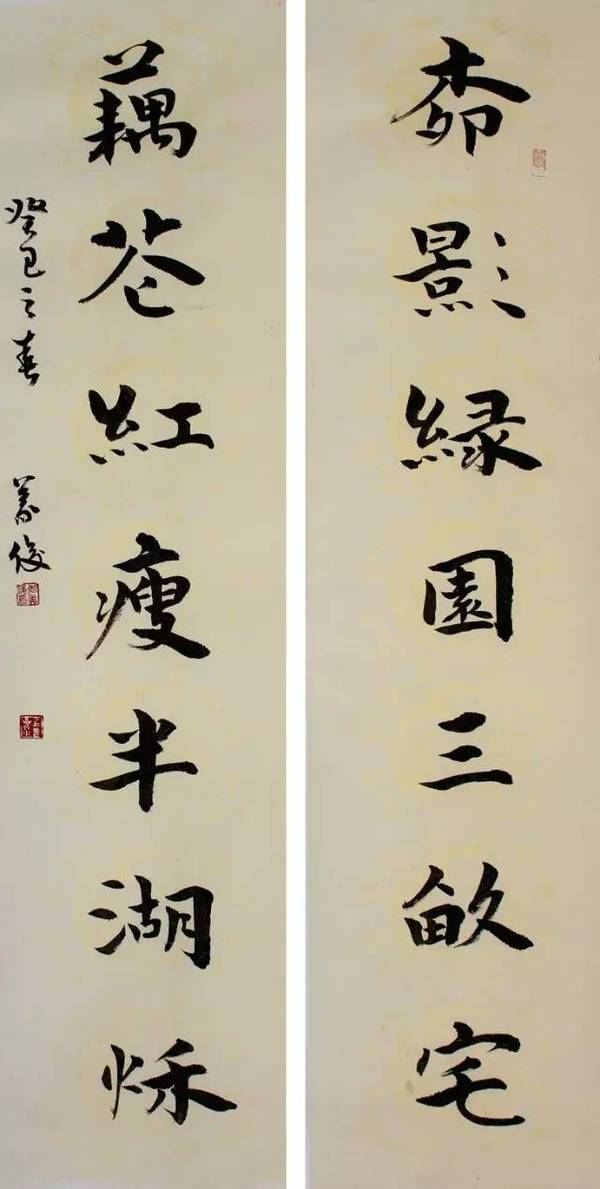 柳影緑園三畝宅
藕花紅瘦半湖秌
癸巳之春 義俊